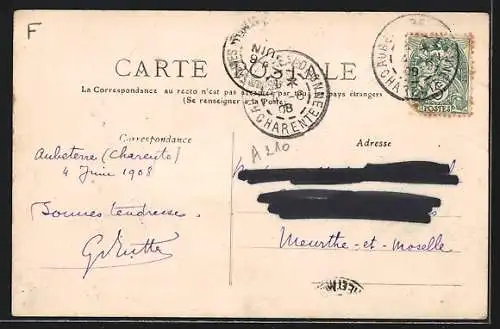 F
CARTE POSTALE
La Correspondance au recto n'est pas acceptée par tous les pays étrangers
(Se renseigner à la Poste)
Correspondance
Adresse
A210
Aubeterre (Charente)
4 Juin 1908
Bonnes tendresses.
Meurthe-et-Moselle
CHARENTE
08
POSTES